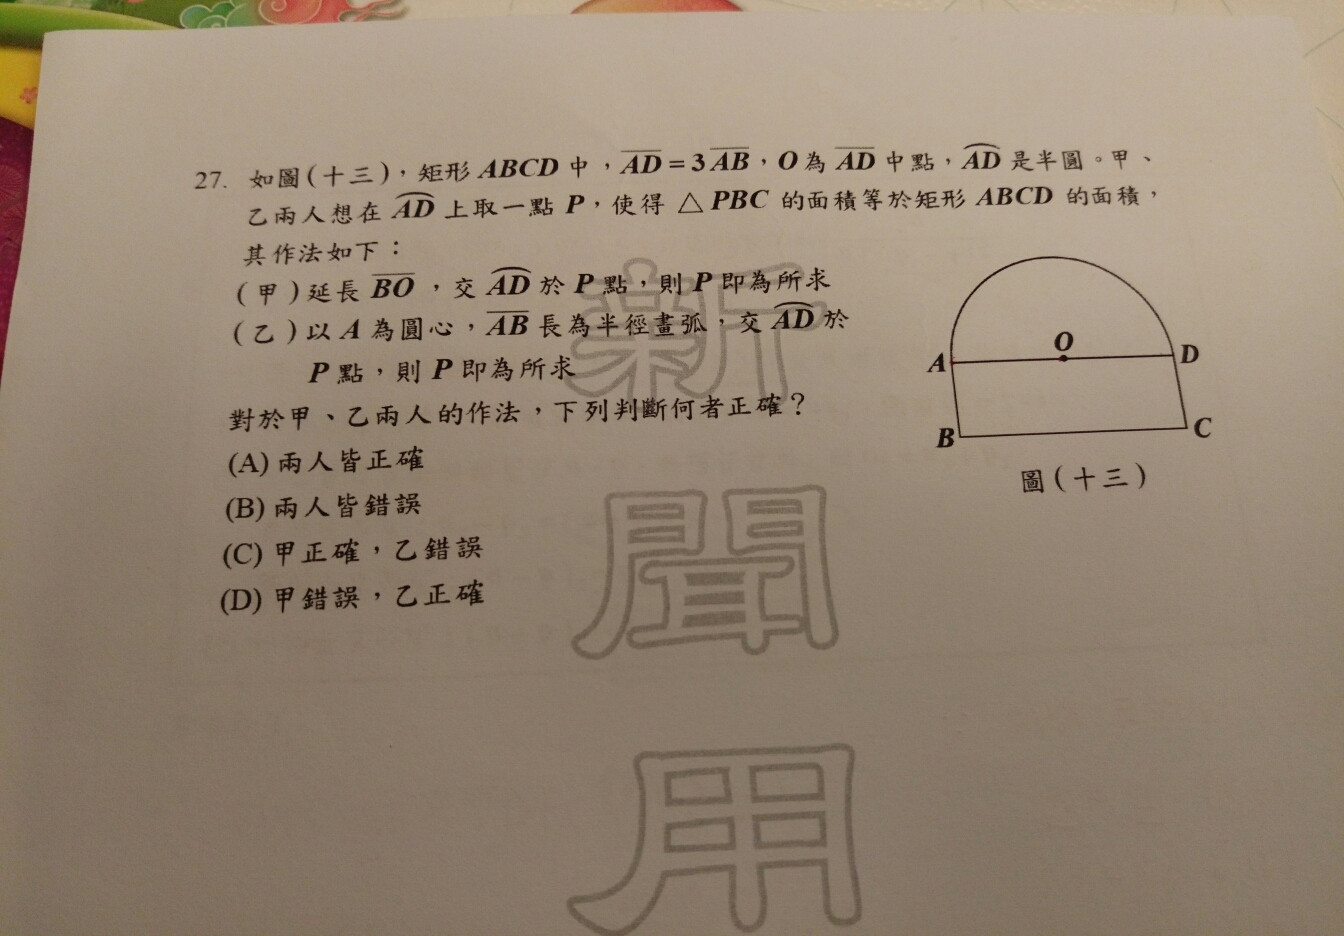 27. 如圖(十三)，矩形 ABCD 中，AD = 3AB，O 為 AD 中點，AD 是半圓。甲、
乙兩人想在 AD 上取一點 P，使得 △PBC 的面積等於矩形 ABCD 的面積，
其作法如下：
(甲) 延長 BO，交 AD 於 P 點，則 P 即為所求
(乙) 以 A 為圓心，AB 長為半徑畫弧，交 AD 於
P 點，則 P 即為所求
對於甲、乙兩人的作法，下列判斷何者正確？
(A) 兩人皆正確
(B) 兩人皆錯誤
(C) 甲正確，乙錯誤
(D) 甲錯誤，乙正確
O
A
D
B
C
圖(十三)
新
聞
用